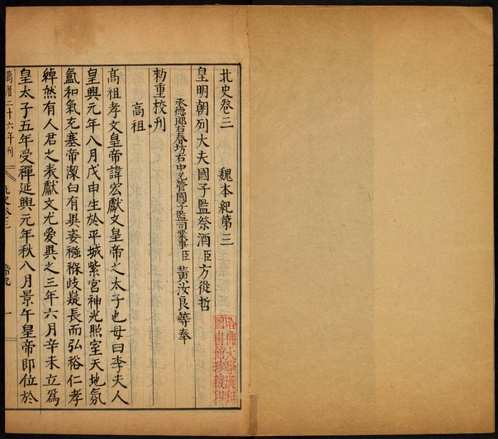 北史卷三
魏本紀第三
皇明朝列大夫國子監祭酒臣方從哲
承德郎右春坊右中允管國子監司業事臣黃汝良等奉
勅重校刋
高祖
高祖孝文皇帝諱宏獻文皇帝之太子也母曰李夫人
皇興元年八月戊申生於平城紫宮神光照室天地氛
氳和氣充塞帝潔白有異姿襁褓岐嶷長而弘裕仁孝
綽然有人君之表獻文尤愛異之三年六月辛未立爲
皇太子五年受禪延興元年秋八月景午皇帝即位於
萬曆二十六年刋